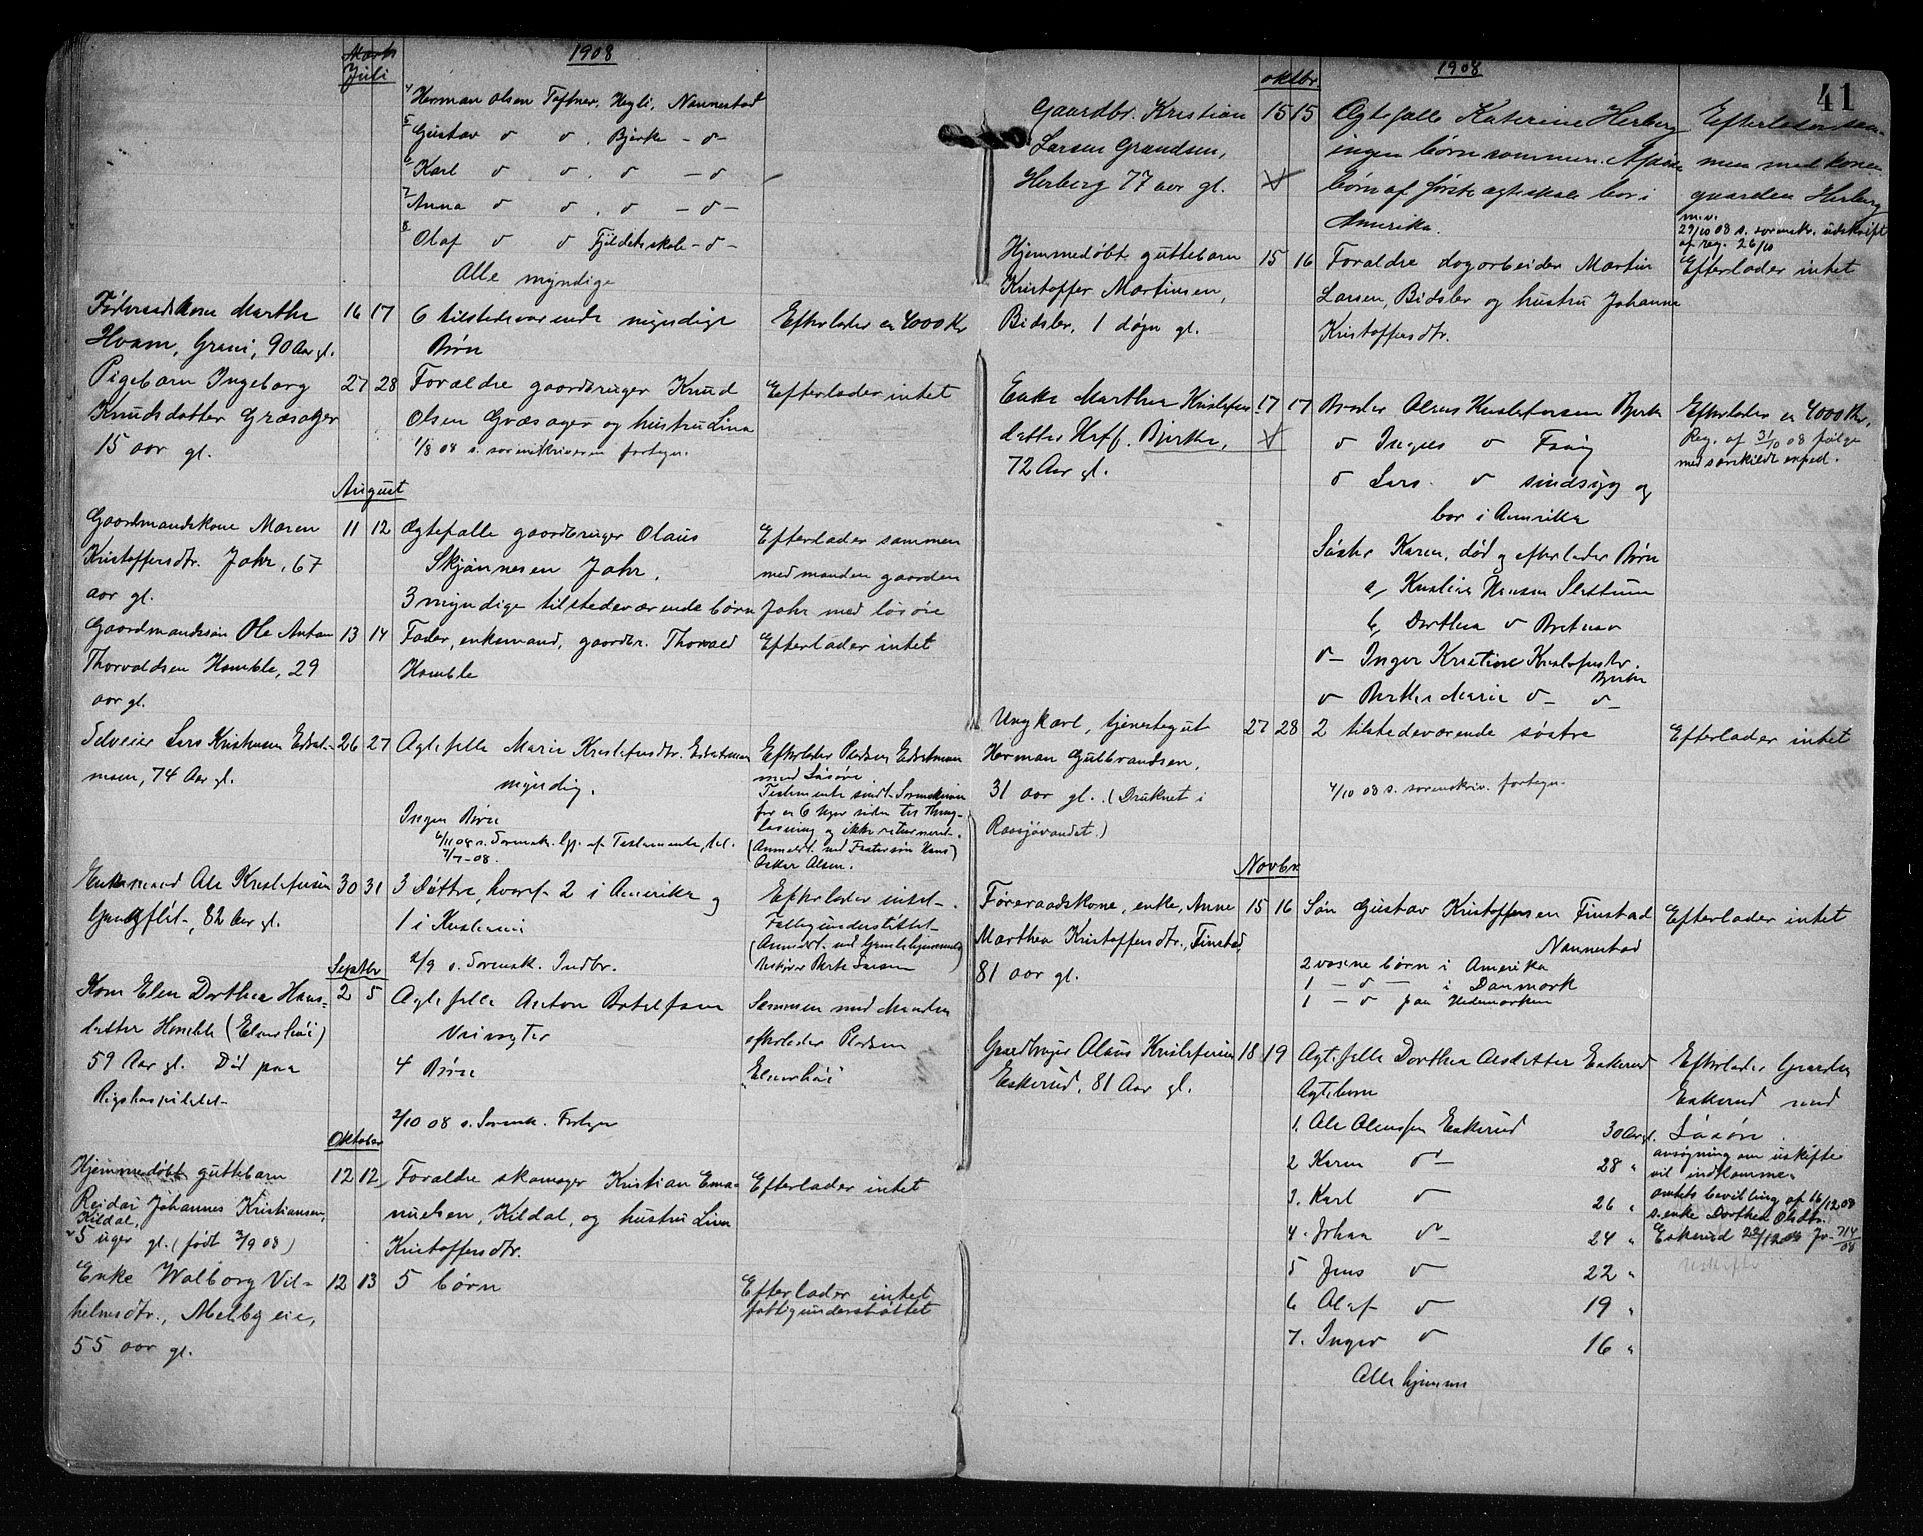 Marts
Juli
1908
4 Herman Olsen Taftner, Hegli, Nannestad
5 Gustav do do, Bjerke - do -
6 Karl do do, do - do
7 Anna do do, do - do -
8 Olaf do do - do -
Alle myndige
Marthe
Hvam, Greni, 90 Aar gl.
16 17
6 tilstedeværende myndige
Børn
Efterlader ca 4000 Kr
Pigebarn Ingeborg
Knudsdatter Græsager
15 aar gl.
27 28
Forældre gaardbruger Knud
Olsen Græsager og hustru Lina
1/8 08 s. sorenskriveren fortegn.
Efterlader intet
August
Gaardmandskone Maren
Kristoffersdtr. Jahr, 67
aar gl.
11 12
Ægtefælle gaardbruger Olaus
Jahr.
3 myndige tilstedeværende børn
Efterlader sammen
med manden gaarden
Jahr med løsøre
Gaardmandssøn Ole Anton
Thorvaldsen Homble, 29
aar gl.
13 14
Fader, enkemand, gaardbr. Thorvald
Homble
Efterlader intet
Selveier Lars
74 Aar gl.
26 27
Ægtefelle Marie
myndig.
Ingen Børn
6/11 08 s. Sorensk.
7/7-08.
Efterlader Pladsen
med Løsøre
Testamente sendt Sorenskriver
for ca 6 Uger siden til Thing-
læsning og ikke returneret.
Oskar Olsen.
Enkemand Ole Kristofersen
82 Aar gl.
30 31
3 Døttre, hvoraf 2 i Amerika og
1 i Kristiania
2/9 s. Sorensk. Indbr.
Efterlader intet.
Fattigunderstøttet
Septbr
Kone Elen Dorthea Hans-
datter Homble
59 Aar gl. Død paa
Rigshospitalet
2 5
Ægtefelle Anton
Veivogter
4 Børn
2/10 08 s. Sorensk. Fortegn
Sammen med Manden
efterlader Pladsen
Oktober
Hjemmedøbt guttebarn
Reidar Johannes Kristiansen,
Kildal,
5 uger gl. (født 2/9 08)
12 12
Forældre skomager Kristian Ema-
nuelsen, Kildal, og hustru Lina
Kristoffersdtr.
Efterlader intet
Enke Walborg Vil-
helmsdtr., Melby eie,
55 aar gl.
12 13
5 børn
Efterlader intet
fattigunderstøttet
oktbr.
1908
41
Gaardbr. Kristian
Larsen Grandsen,
Herberg 77 aar gl.
15 15
Ægtefælle Katerine Herberg
ingen børn sammen. Afdøde
børn af første ægteskab bor i
Amerika.
Efterlader sam-
men med konen
gaarden Herberg
m.v.
29/10 08 s. sorenskr. udskrift
af reg. 26/10
Hjemmedøbt guttebarn
Kristoffer Martinsen,
Bidsler, 1 døgn gl.
15 16
Forældre dagarbeider Martin
Larsen, Bidsler og hustru Johanne
Kristoffersdtr.
Efterlader intet
Enke Marthea Kristofers
datter Hoff. Bjerke,
72 Aar gl.
17 17
Broder Olaus Kristofersen Bjerke
do do
do Lars do sindssyg og
bor i Amerika
Søster Karen, død og efterlader Børn
a, Hansen Slettum
b, Dorthea do
do - Inger Kristine Kristofersdtr.
Bjerke
do Berthe Marie do - do -
Efterlader ca 4000 Kr.
Reg. af 31/10 08 følge
med særskildt exped.
Ungkarl, tjenestegut
Herman Gulbrandsen,
31 aar gl. (Druknet i
Raasjøvandet.)
27 28
2 tilstedeværende søstre
4/10 08 s. sorenskriv. fortegn.
Efterlader intet
Novbr.
Føreraadskone, enke, Anne
Marthea Kristoffersdtr., Finstad,
81 aar gl.
15 16
Søn Gustav Kristoffersen Finstad
Nannestad
2 voxne børn i Amerika
1 - do - i Danmark
1 - do paa Hedemarken
Efterlader intet
Gaardbruger Olaus Kristofersen
Eskerud, 81 Aar gl.
18 19
Ægtefelle Dorthea Olsdatter Eskerud
Ægtebørn
1. Ole Olaussen Eskerud 30 Aar gl.
2 Karen do - 28 "
3. Karl do 26 "
4. Johan do - 24 "
5 Jens do 22 "
6 Olaf do 19 "
7. Inger do 16 "
Alle hjemme
Efterlader Gaarden
Eskerud med
Løsøre.
ansøgning om uskifte
vil indkomme.
amtets bevilling af 16/12 08
s. enke Dorthea Olsdtr.
Eskerud 22/12 08 Jr. 714/08
Uskifte